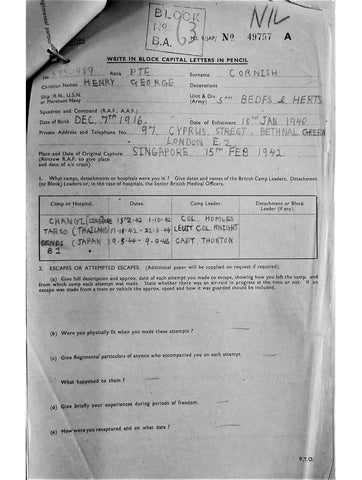 BLOCK
No 63
B.A.
NIL
No 49757 A
WRITE IN BLOCK CAPITAL LETTERS IN PENCIL
No. Rank PTE Surname CORNISH
Christian Names HENRY GEORGE Decorations
Ship (R.N., U.S.N. or Merchant Navy) Unit & Div. (Army) 5TH BEDFS & HERTS
Squadron and Command (R.A.F., A.A.F.)
Date of Birth DEC 7TH 1916. Date of Enlistment 15TH JAN 1940
Private Address and Telephone No. 97 CYPRUS STREET, BETHNAL GREEN
LONDON E.2
Place and Date of Original Capture SINGAPORE, 15TH FEB 1942
(Aircrew R.A.F. to give place and date of a/c crash)
1. What camps, detachments or hospitals were you in? Give dates and names of the British Camp Leaders, Detachment
(or Block) Leaders or, in the case of hospitals, the Senior British Medical Officers.
Camp or Hospital. Dates. Camp Leader. Detachment or Block Leader (if any).
CHANGI 1-10-42 COL. HOMLES
TARSO (THAILAND) LEUIT COL. KNIGHT
(JAPAN) 9-9-45 CAPT. THORTON
2. ESCAPES OR ATTEMPTED ESCAPES. (Additional paper will be supplied on request if required).
(a) Give full description and approx. date of each attempt you made to escape, showing how you left the camp, and
from which camp each attempt was made. State whether there was an air-raid in progress at the time or not. If an
escape was made from a train or vehicle the approx. speed and how it was guarded should be included.
(b) Were you physically fit when you made these attempts?
(c) Give Regimental particulars of anyone who accompanied you on each attempt.
What happened to them?
(d) Give briefly your experiences during periods of freedom.
(e) How were you recaptured and on what date?
P.T.O.